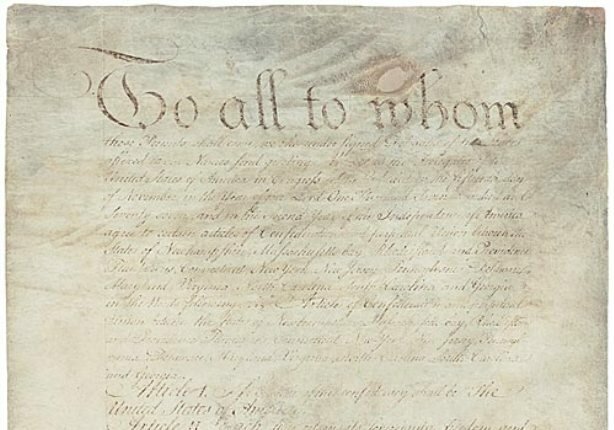 To all to whom
these Presents shall come, we the under signed Delegates of the States
affixed to our Names send greeting. Whereas the Delegates of the
United States of America in Congress assembled did on the fifteenth day
of November in the Year of our Lord One Thousand Seven Hundred and
Seventy seven, and in the Second Year of the Independence of America
agree to certain articles of Confederation and perpetual Union between the
States of Newhampshire, Massachusetts-bay, Rhodeisland and Providence
Plantations, Connecticut, New York, New Jersey, Pennsylvania, Delaware,
Maryland, Virginia, North-Carolina, South-Carolina and Georgia
in the Words following, viz. Articles of Confederation and perpetual
Union between the States of Newhampshire, Massachusetts-bay, Rhodeisland
and Providence Plantations, Connecticut, New-York, New-Jersey, Pennsyl-
vania, Delaware, Maryland, Virginia, North-Carolina, South-Carolina
and Georgia.
Article I. The Stile of this confederacy shall be "The
United States of America."
Article II. Each state retains its sovereignty, freedom and